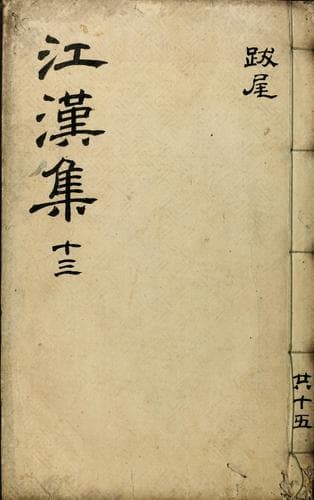 跋尾
江漢集 十三
共十五